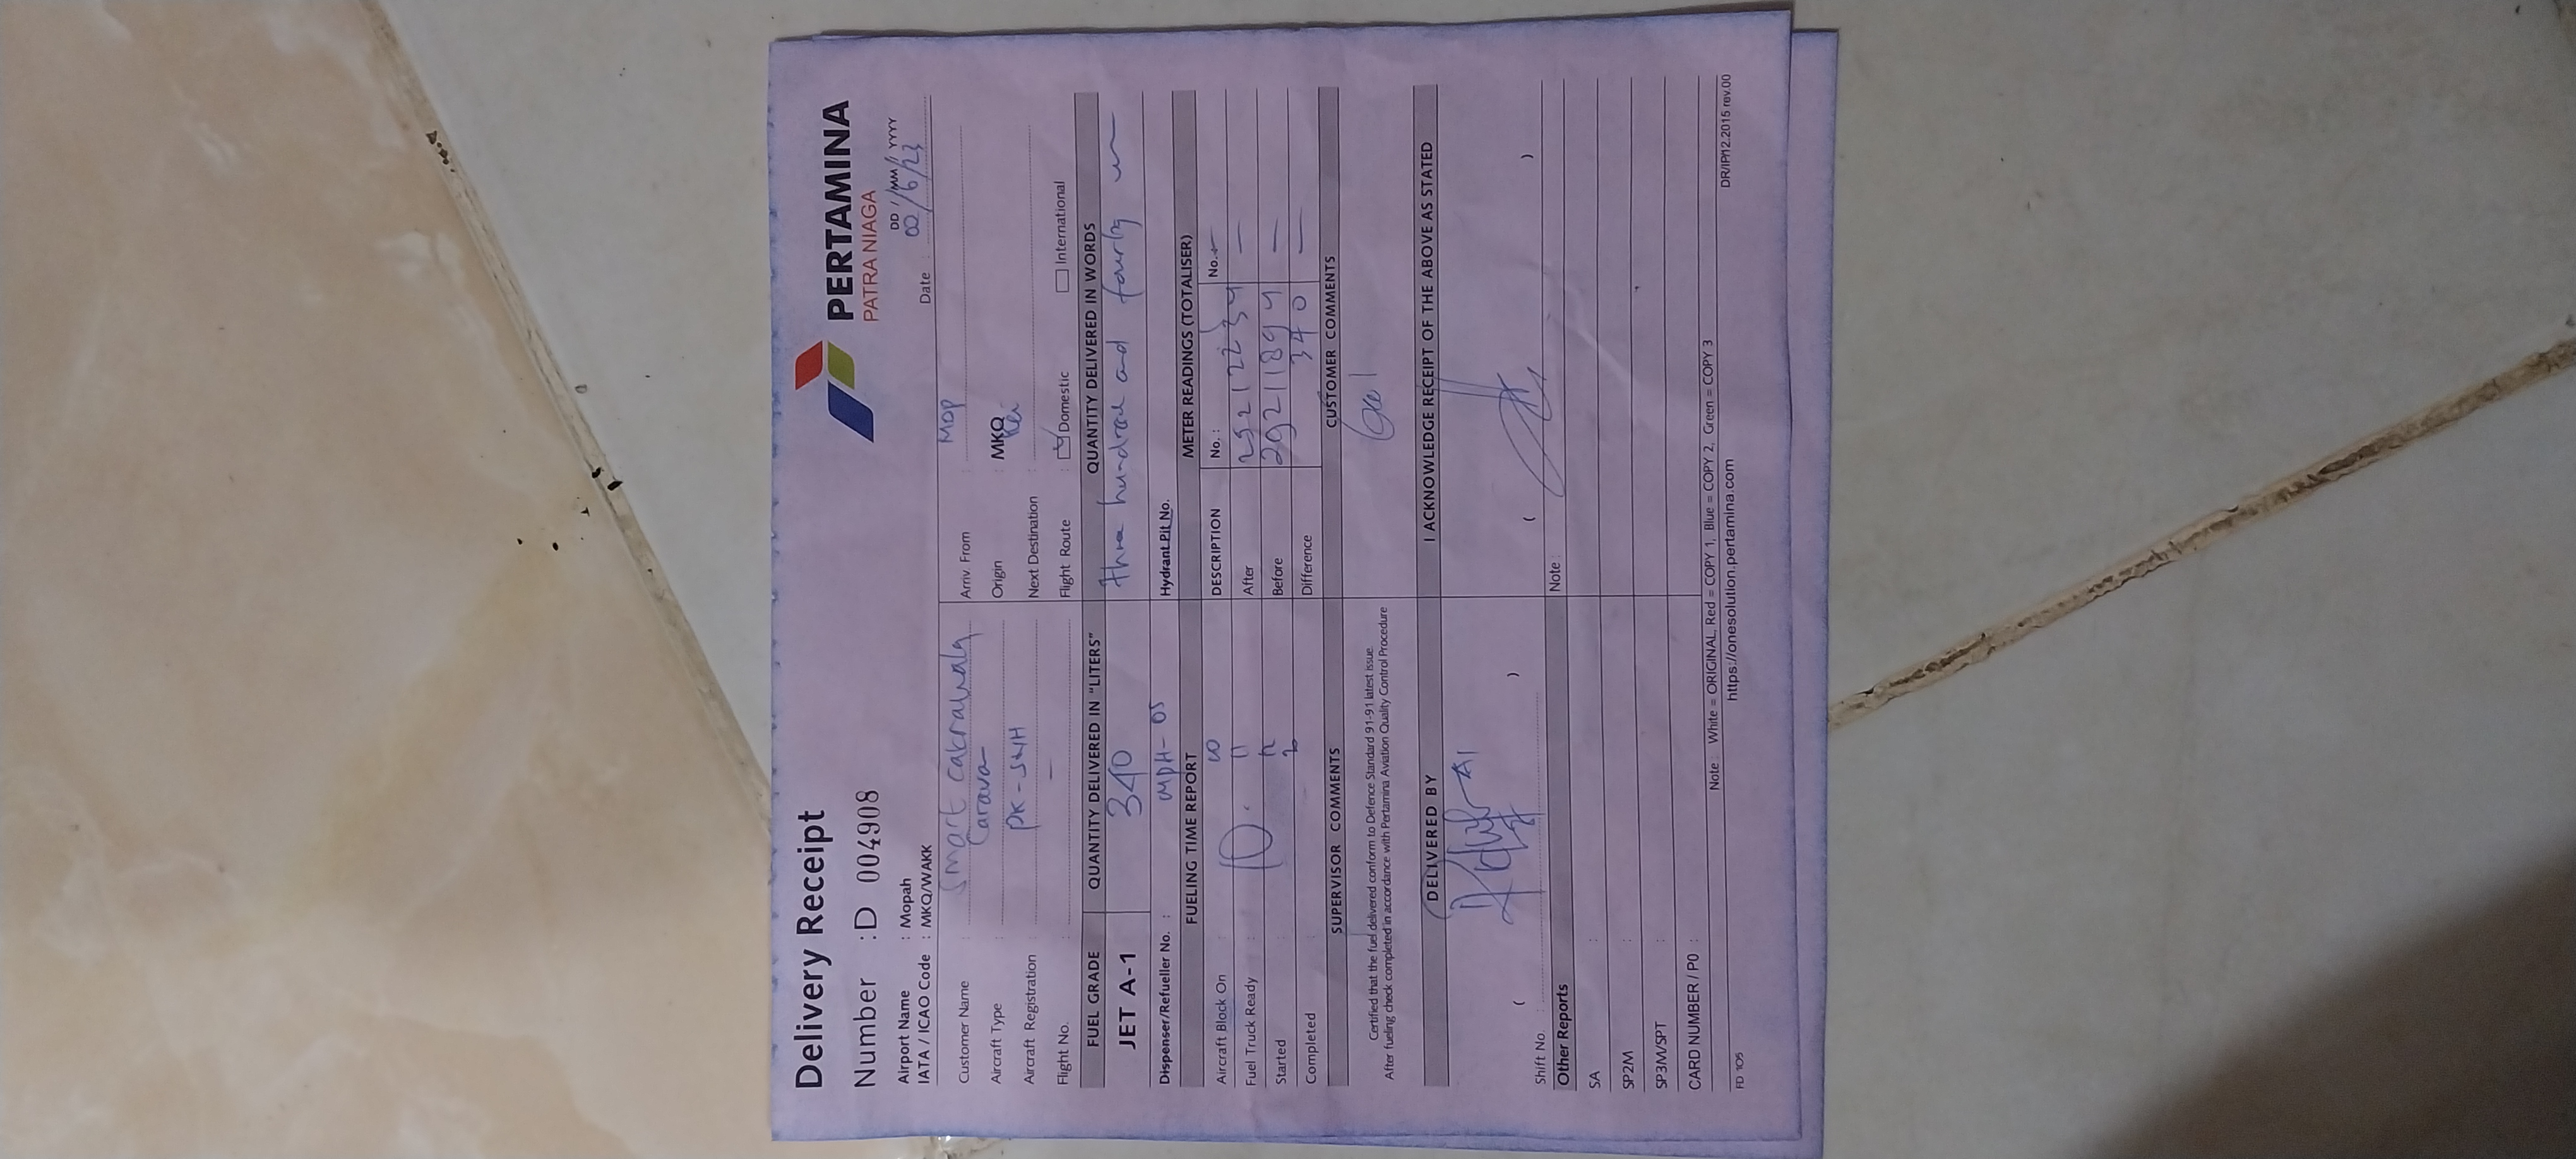 Delivery Receipt
PERTAMINA
PATRA NIAGA
Number : D 004908
DD / MM / YYYY
Airport Name : Mopah
IATA / ICAO Code : MKQ/WAKK
Date : /6/23
Customer Name : Smart Cakrawala
Arriv. From : MDP
Aircraft Type : Caravan
Origin : MKQ
Aircraft Registration : PK-SNH
Next Destination :
Flight No. : —
Flight Route : Domestic International
FUEL GRADE
QUANTITY DELIVERED IN "LITERS"
QUANTITY DELIVERED IN WORDS
JET A-1
340
three hundred and fourty
Dispenser/Refueller No. : MPH-05
Hydrant Pit No.
FUELING TIME REPORT
METER READINGS (TOTALISER)
DESCRIPTION
No. :
No. —
Aircraft Block On :
Fuel Truck Ready :
After 29212234 —
Started :
Before 29211894 —
Completed :
Difference 340 —
SUPERVISOR COMMENTS
CUSTOMER COMMENTS
Certified that the fuel delivered conform to Defence Standard 91-91 latest issue.
After fueling check completed in accordance with Pertamina Aviation Quality Control Procedure
DELIVERED BY
I ACKNOWLEDGE RECEIPT OF THE ABOVE AS STATED
( )
( )
Shift No. :
Note :
Other Reports
SA :
SP2M :
SP3M/SPT :
CARD NUMBER / P0 :
Note : White = ORIGINAL, Red = COPY 1, Blue = COPY 2, Green = COPY 3
FD 105
https://onesolution.pertamina.com
DR/IP/12.2015 rev.00